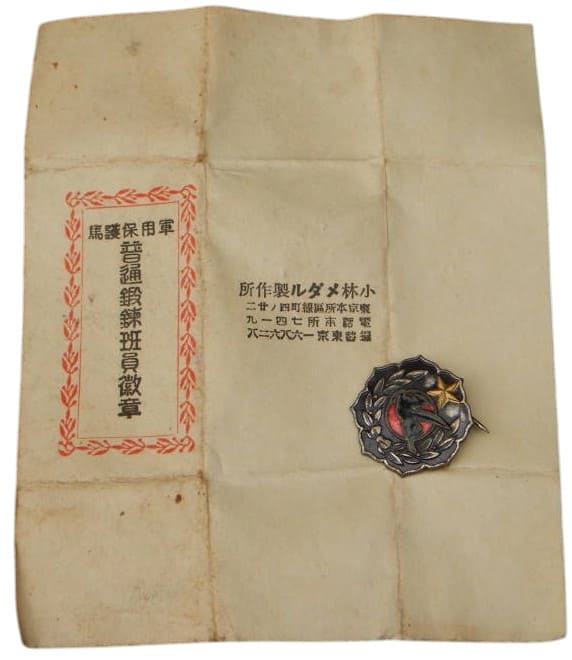 小林メダル製作所
東京本所區緑町四ノ廿二
電話本所七四一九
振替東京一六八六二八
軍用保護馬
普通鍛錬班員徽章